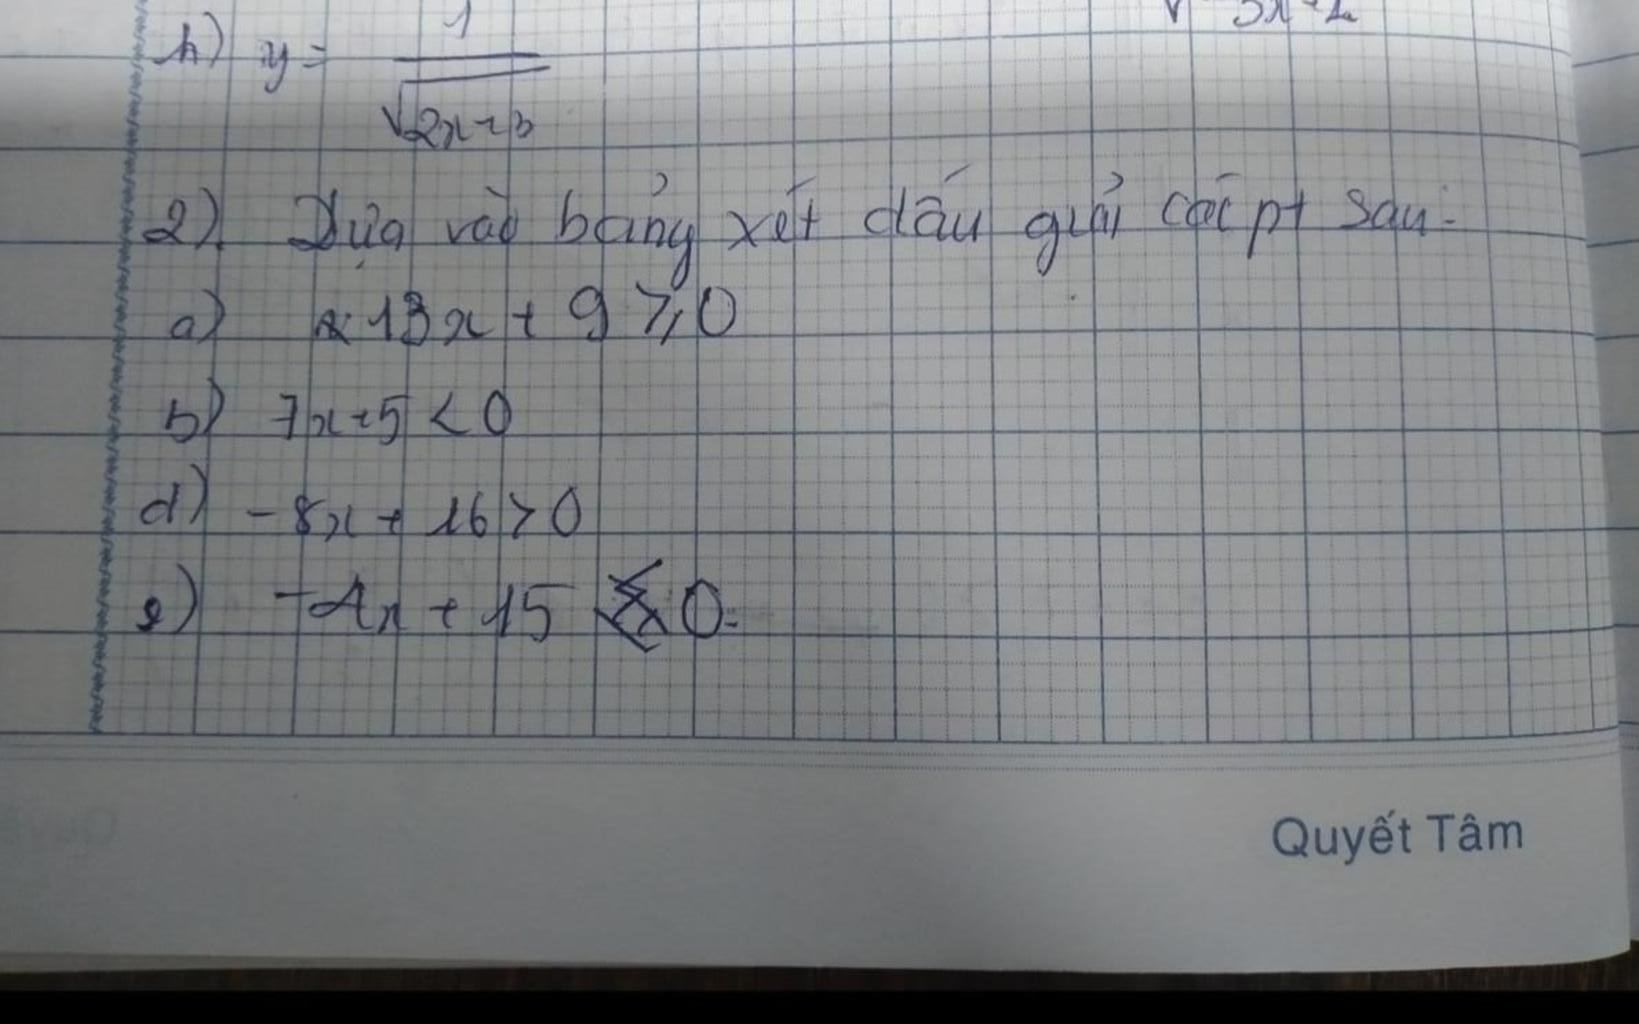 h) y = 1/√2x+3
√-3x+2
2). Dựa vào bảng xét dấu giải các pt sau:
a) 13x + 9 ⩾ 0
b) 7x+5 < 0
d) -8x + 16 > 0
e) -4x + 15 0.
Quyết Tâm